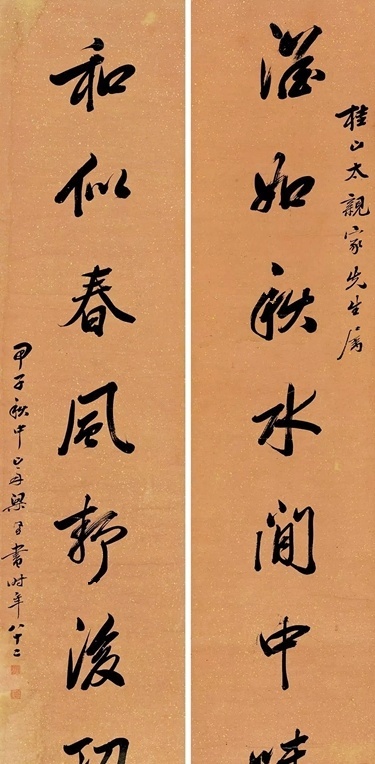 桂山太親家先生屬
澹如秋水閒中味
和似春風靜後功
甲子秋中山舟梁同書時年八十二